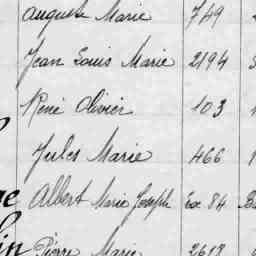 Auguste Marie 749
Jean Louis Marie 2194
René Olivier 103
Jules Marie 466
Albert Marie Joseph Ex 84
Pierre Marie 2618